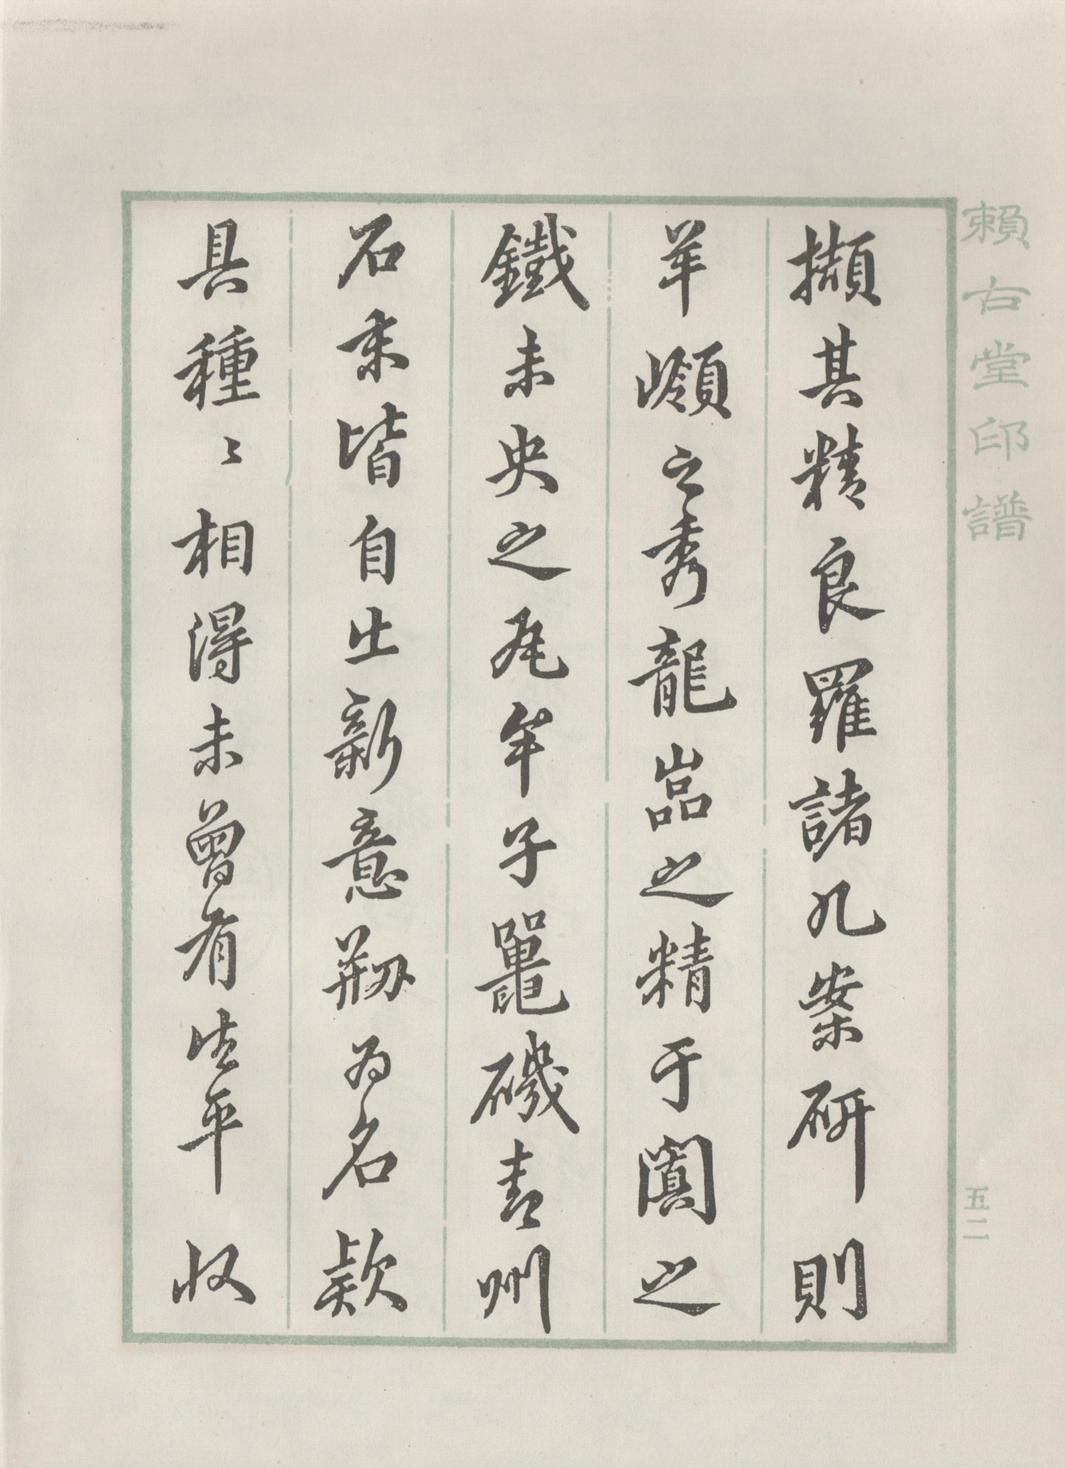 賴古堂印譜
擷其精良羅諸几案研則
羊㟏之秀龍喦之精于闐之
鐵未央之瓦年子鼉磯青州
石末皆自出新意剏為名款
具種〻相得未曾有生平收
五二